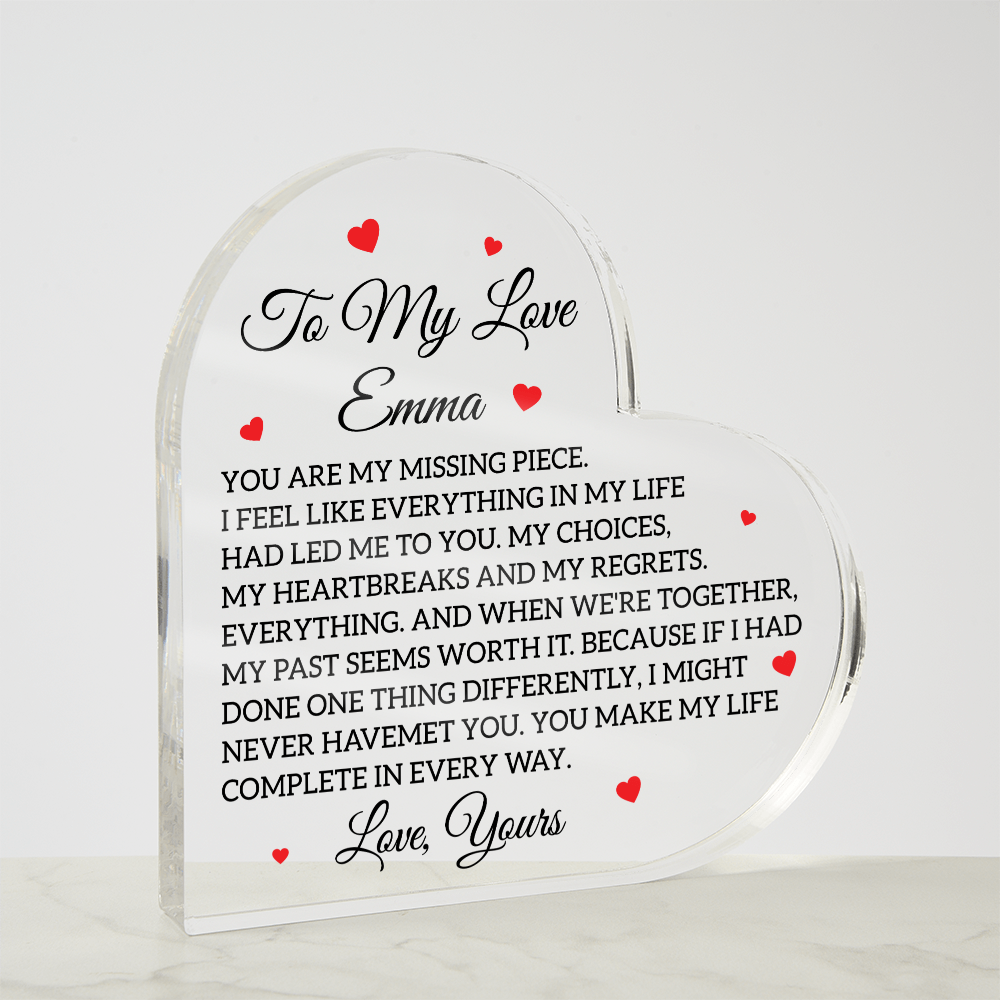 To My Love
Emma
YOU ARE MY MISSING PIECE.
I FEEL LIKE EVERYTHING IN MY LIFE
HAD LED ME TO YOU. MY CHOICES,
MY HEARTBREAKS AND MY REGRETS.
EVERYTHING. AND WHEN WE'RE TOGETHER,
MY PAST SEEMS WORTH IT. BECAUSE IF I HAD
DONE ONE THING DIFFERENTLY, I MIGHT
NEVER HAVEMET YOU. YOU MAKE MY LIFE
COMPLETE IN EVERY WAY.
Love, Yours